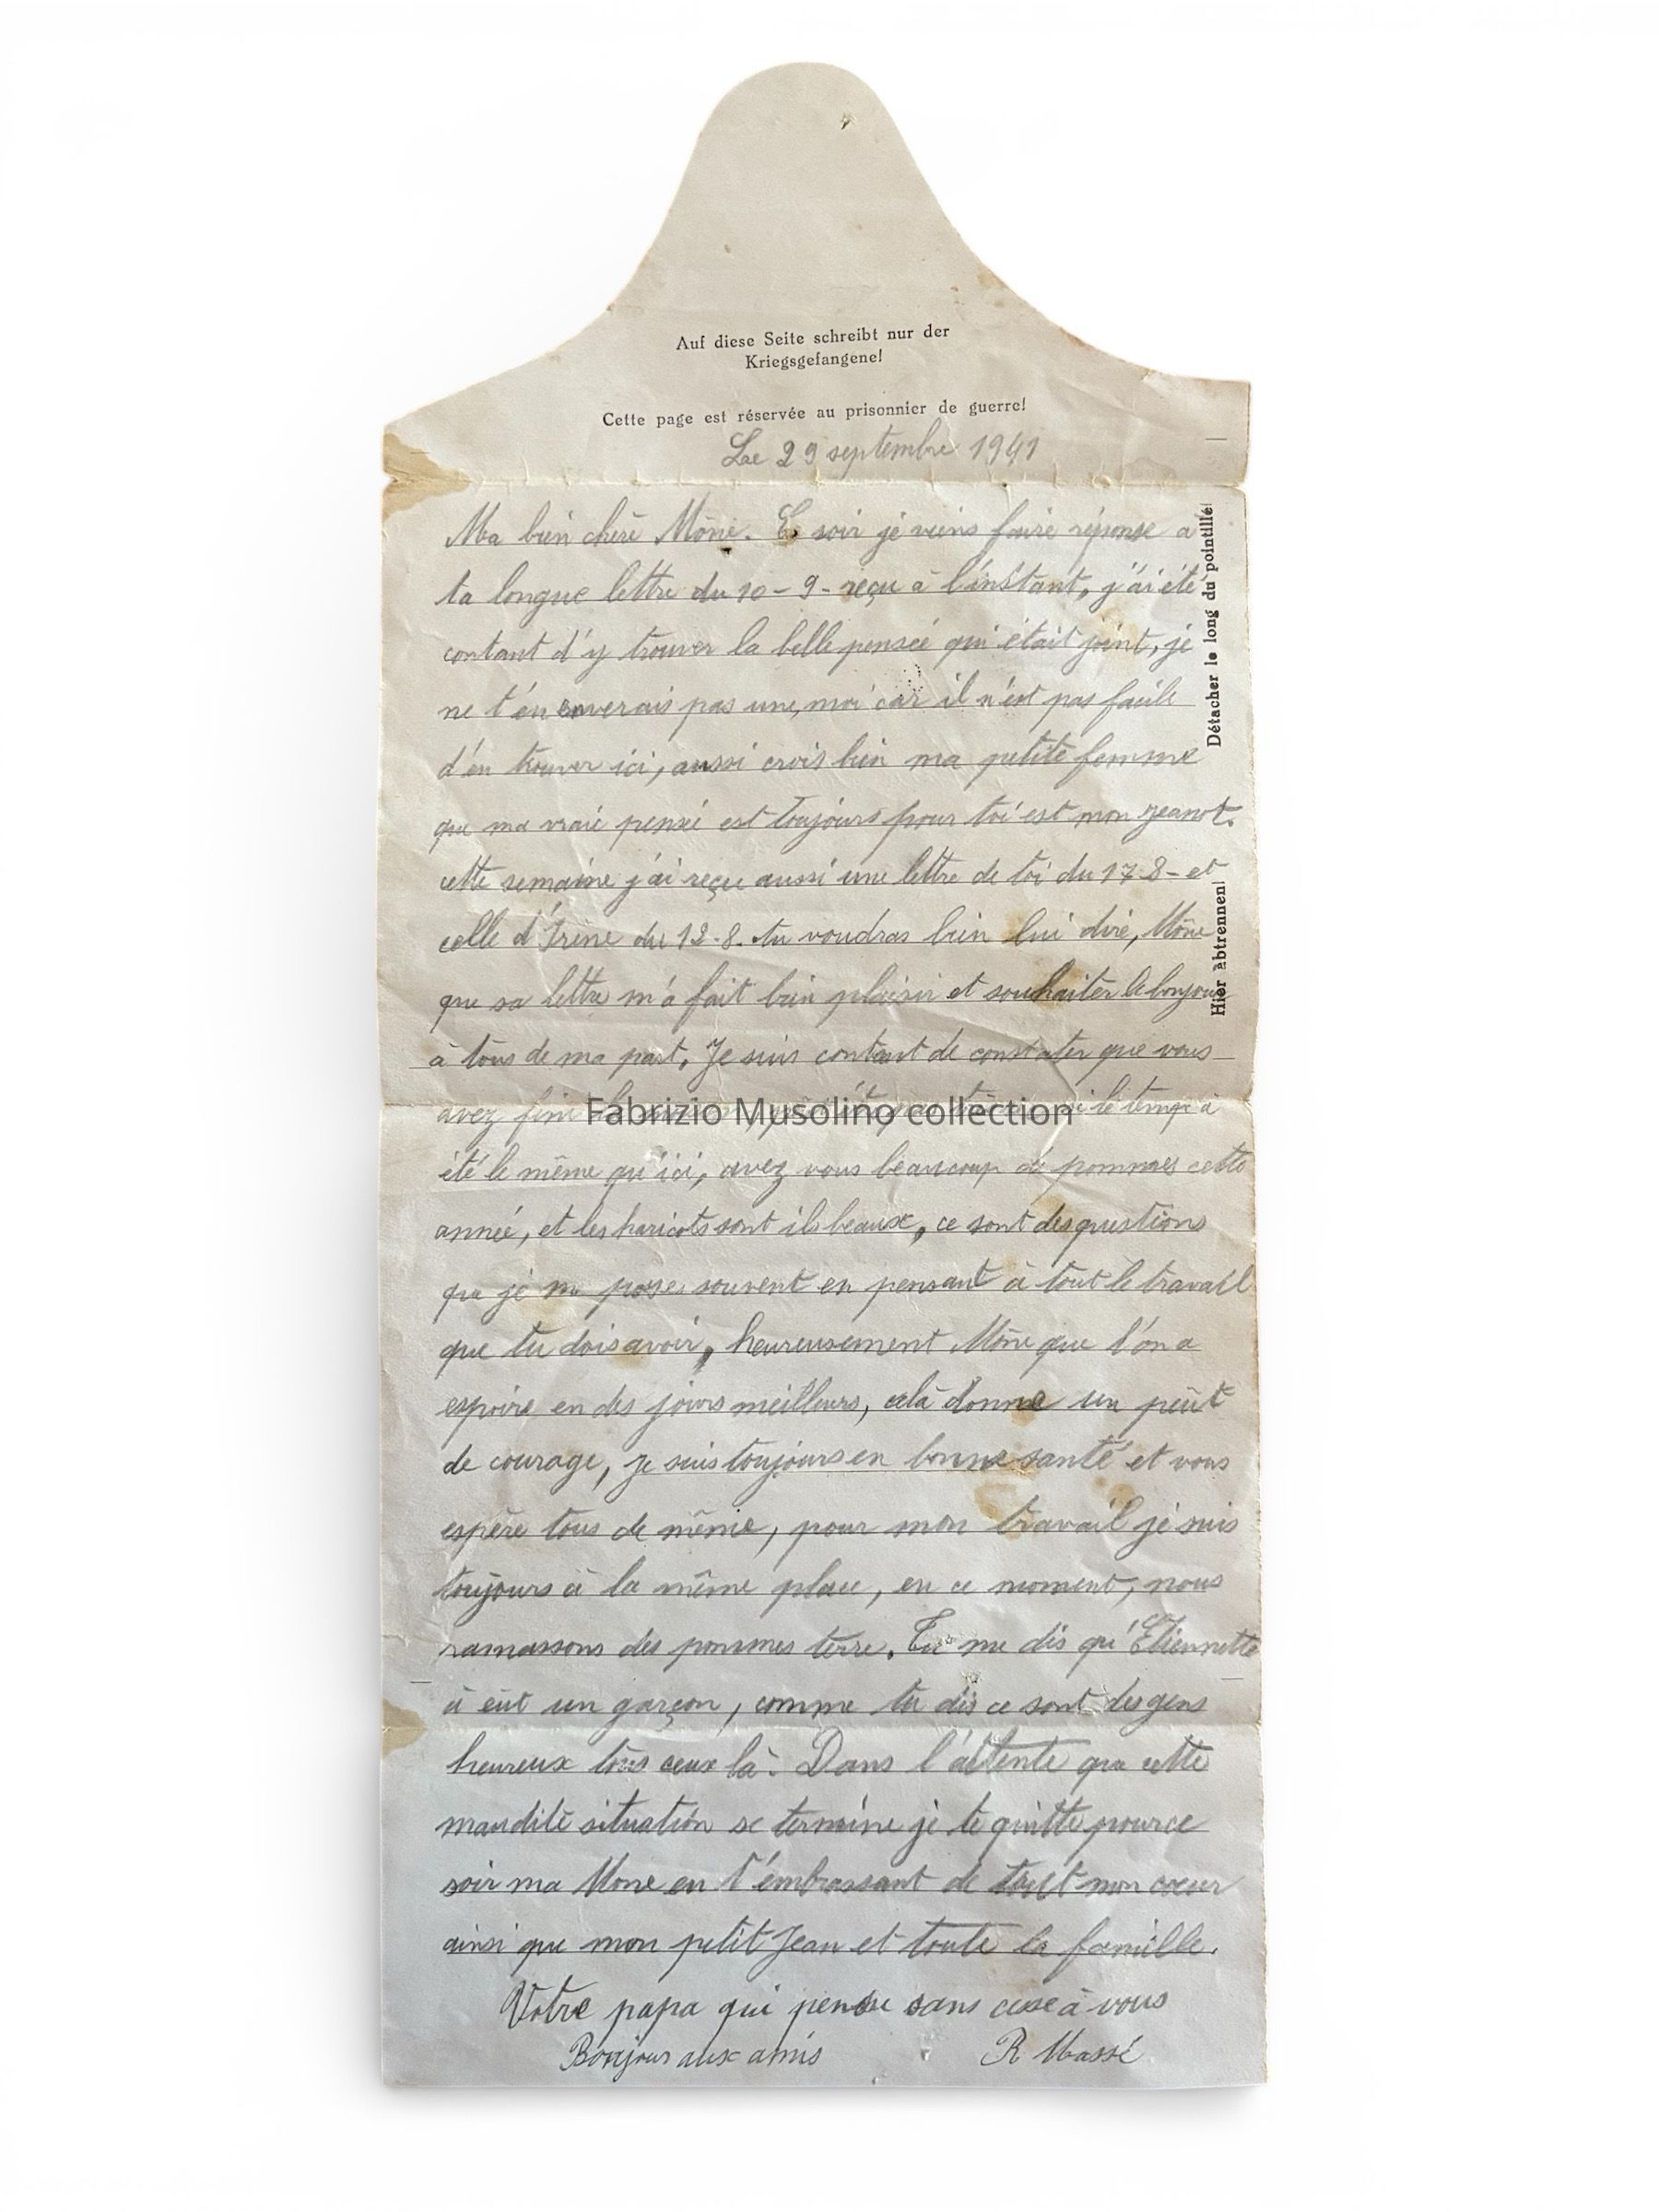 Auf diese Seite schreibt nur der
Kriegsgefangene!
Cette page est réservée au prisonnier de guerre!
Le 29 septembre 1941
Ma bien chère Mône. Ce soir je viens faire réponse a
ta longue lettre du 10-9- reçu à l'instant, j'ai été
contant d'y trouver la belle pensée qui était joint, je
ne t'en enverais pas une, moi car il n'est pas facile
d'en trouver ici, aussi crois bien ma petite femme
que ma vraie pensé est toujours pour toi est mon jeanot.
cette semaine j'ai reçue aussi une lettre de toi du 17-8- et
celle d'Irène du 12-8. tu voudras bien lui dire, Mône
que sa lettre m'a fait bien plaisir et souhaiter le bonjour
à tous de ma part. Je suis contant de constater que vous
avez fini si le temps à
été le même qu'ici, avez vous beaucoup de pommes cette
année, et les haricots sont ils beaux, ce sont des questions
que je me pose souvent en pensant à tout le travail
que tu dois avoir, heureusement Mône que l'on a
espoire en des jours meilleurs, celà donne un peut
de courage, je suis toujours en bonne santé et vous
espère tous de même, pour mon travail je suis
toujours à la même place, en ce moment, nous
ramassons des pommes terre. Tu me dis qu'Etiennette
à eut un garçon, comme tu dis ce sont des gens
heureux tous ceux là. Dans l'attente que cette
maudite situation se termine je te quitte pour ce
soir ma Mone en t'embrassant de tout mon coeur
ainsi que mon petit Jean et toute la famille.
Votre papa qui pense sans cesse à vous
Bonjour aux amis R Massé
Détacher le long du pointillé!
Hier abtrennen!
Fabrizio Musolino collection